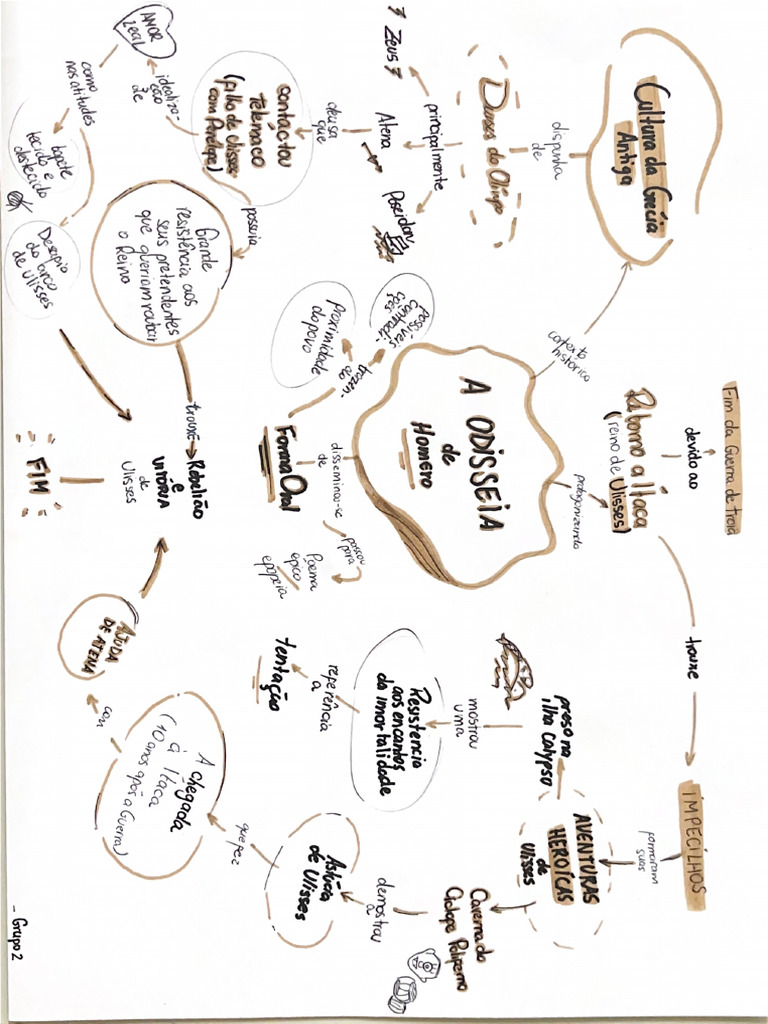 Cultura da Grécia
Antiga
dispunha
de
Deuses do Olimpo
principalmente
Zeus
Atena
Poseidon
deusa
que
contactou
Telêmaco
(filho de Ulisses
com Penélope)
idealiza-
ção
de
AMOR
Leal
como
nas atitudes
tapete
tecido e
destecido
Desafio
do arco
de Ulisses
possuia
Grande
resistência aos
seus pretendentes
que queriam roubar
o Reino
trouxe
Rebelião
e
VITÓRIA
de
Ulisses
FIM
contexto
histórico
A ODISSEIA
de
Homero
disseminou-se
de
Forma Oral
trazen-
do
possíveis
contradi-
ções
Proximidade
do povo
passou
para
Poema
épico
epopeia
protagonizando
Retorno a Ítaca
(reino de Ulisses)
devido ao
Fim da Guerra de troia
trouxe
IMPECÍLHOS
formaram
suas
AVENTURAS
HERÓICAS
de
Ulisses
preso na
ilha Calypso
mostrou
uma
Resistencia
aos encantos
da imortalidade
referência
a
tentação
Caverna do
Ciclope Polifemo
demostrou
a
Astúcia
de Ulisses
que fez
A chegada
á Ítaca
(10 anos após a Guerra)
com
AJUDA
DE ATENA
- Grupo 2